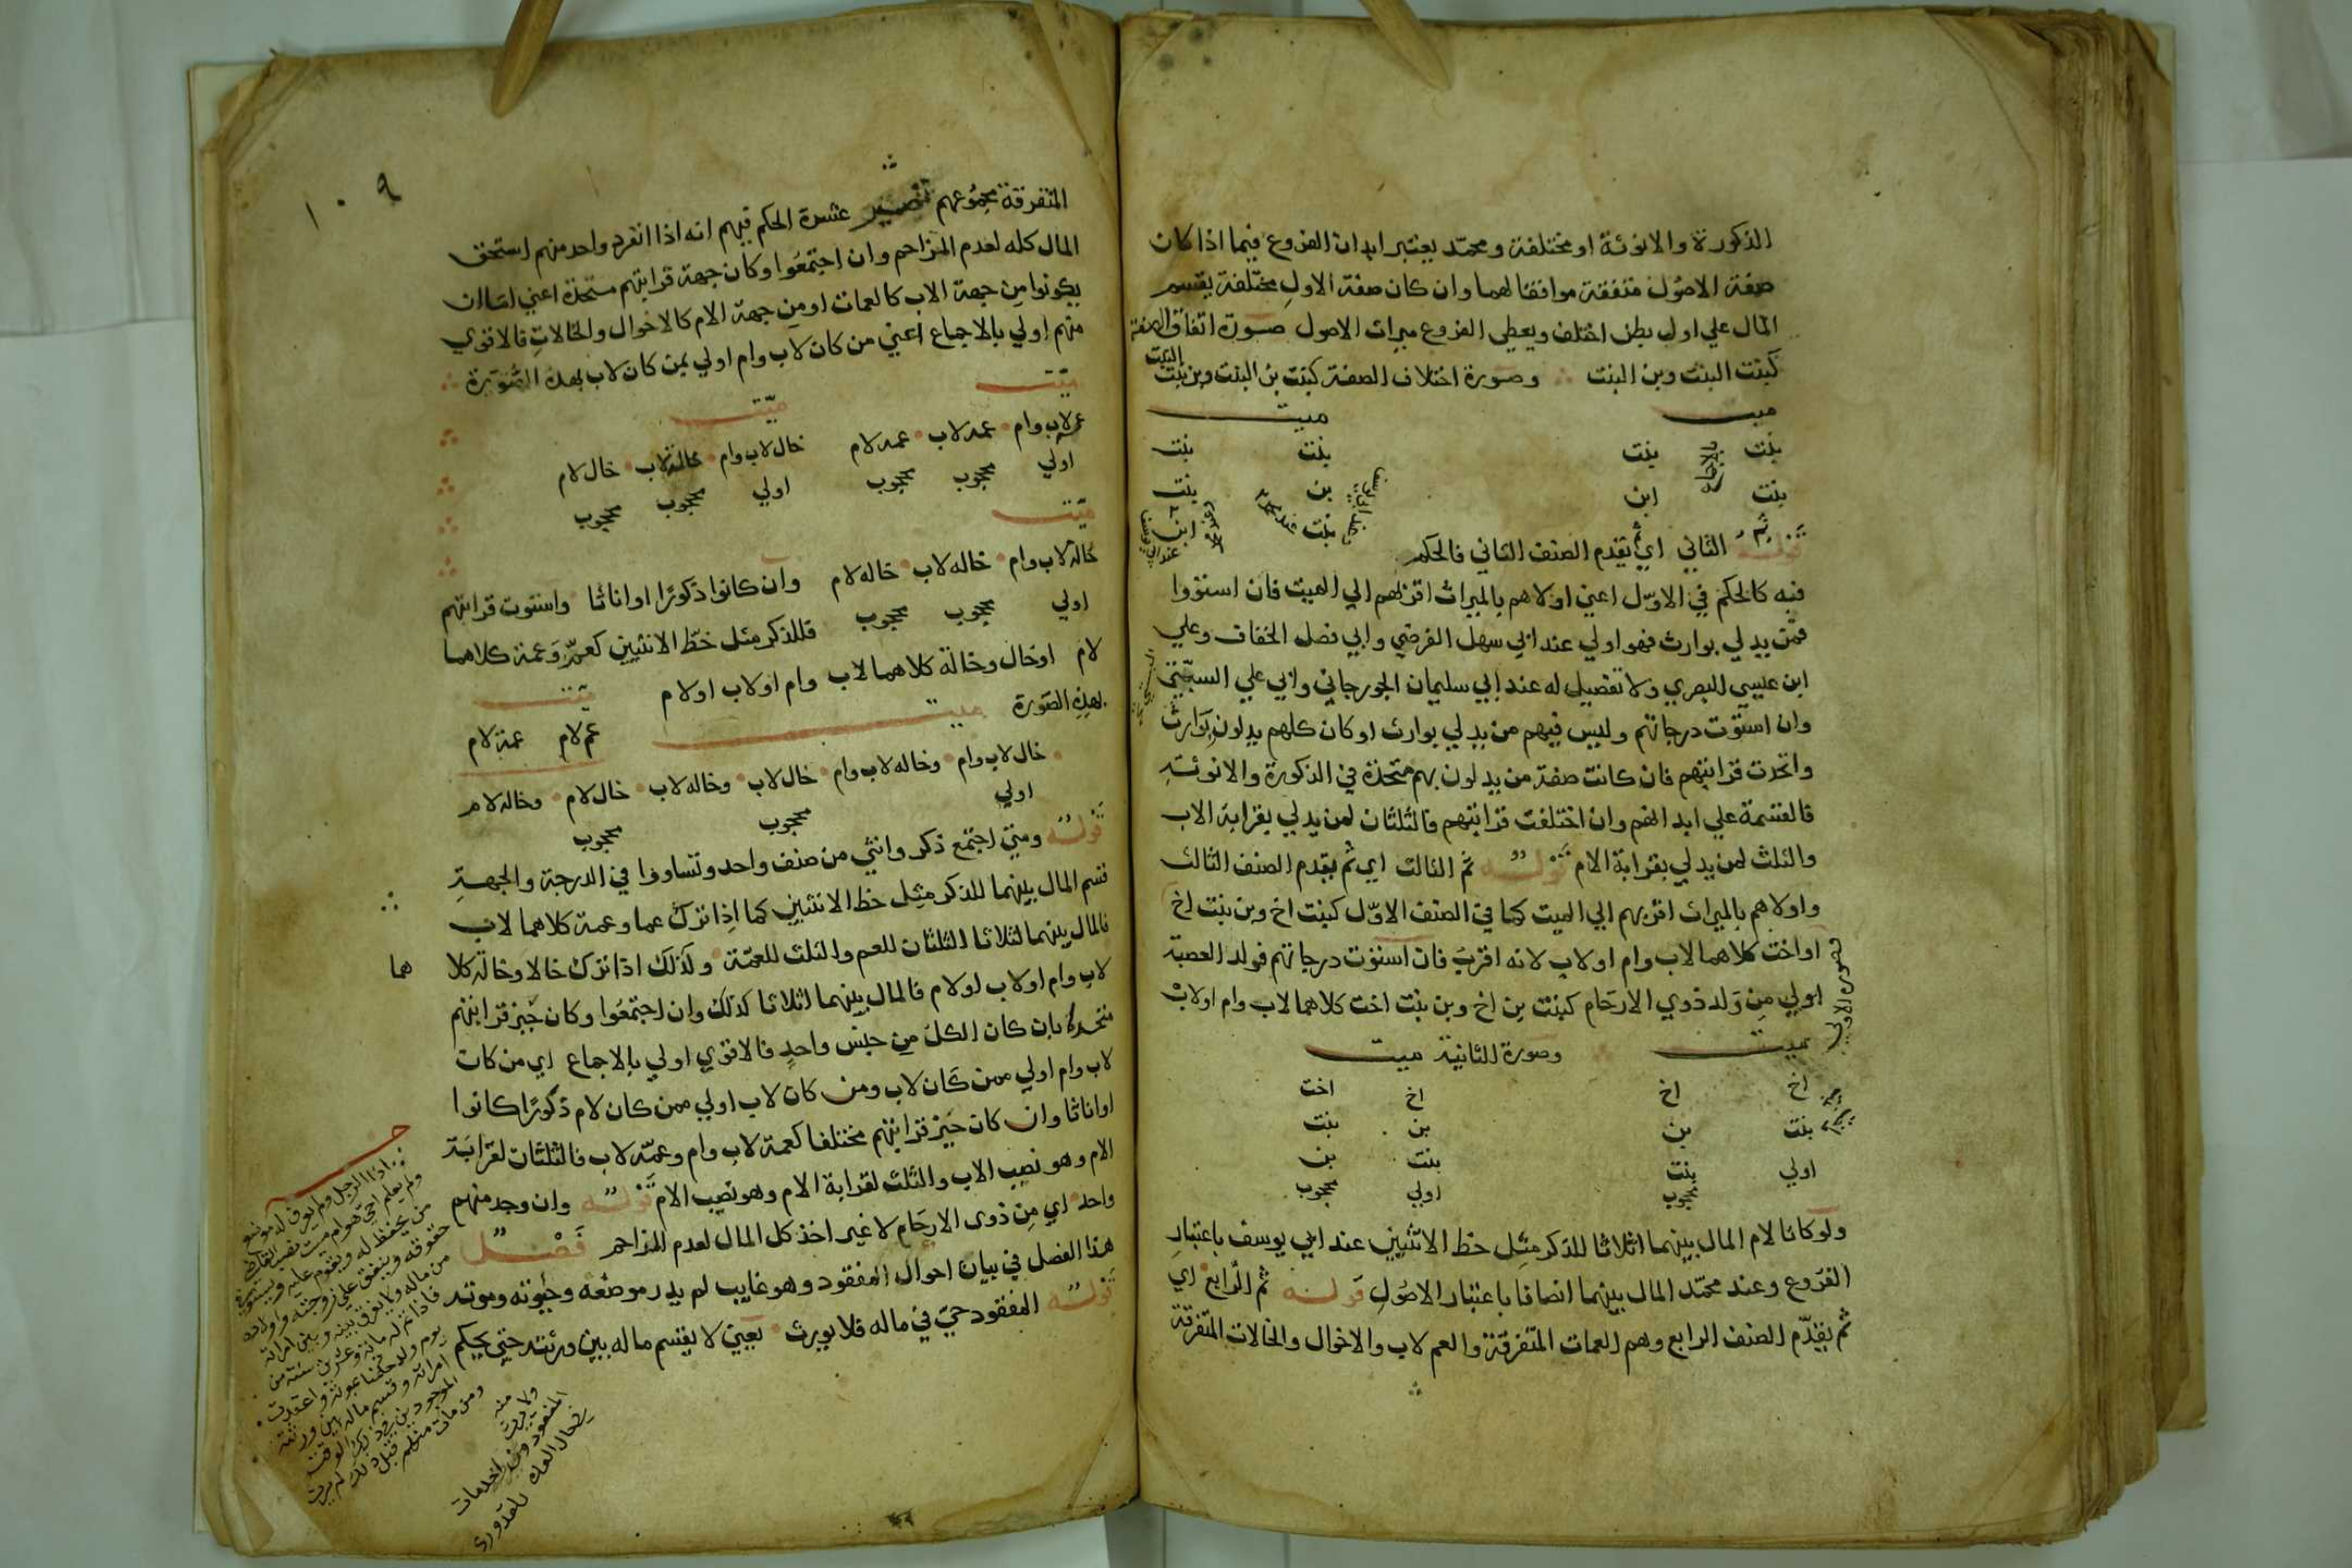 الذكورة والانوثة او مختلفة ومحمد يعتبر ابدان الفروع فيما اذا كان
صفة الاصول متفقة موافقا لهما وان كان صفة الاول مختلفة يقسم
المال علي اول بطن اختلف ويعطي الفروع ميراث الاصول صورة اتفاق الصفة
كبنت البنت وبن البنت وصورة اختلاف الصفة كبنت بن البنت وبن بنت البنت
ميت ميت
بنت بنت بنت بنت
بنت ابن بن بنت
بنت ابن
قوله ثم الثاني اي ثم يقدم الصنف الثاني فالحكم
فيه كالحكم في الاول اعني اولاهم بالميراث اقربهم الي الميت فان استووا
فمن يدلي بوارث فهو اولي عند ابي سهل الفرضي وابي فضل الخفاف وعلي
ابن عيسي البصري ولا تفضيل له عند ابي سليمان الجورجاني وابي علي السبتي
وان استوت درجاتهم وليس فيهم من يدلي بوارث او كان كلهم يدلون بوارث
واتحدت قرابتهم فان كانت صفة من يدلون بهم متحدة في الذكورة والانوثة
فالقسمة علي ابدانهم وان اختلفت قرابتهم فالثلثان لمن يدلي بقرابة الاب
والثلث لمن يدلي بقرابة الام قوله ثم الثالث اي ثم يقدم الصنف الثالث
واولاهم بالميراث اقربهم الي الميت كما في الصنف الاول كبنت اخ وبن بنت اخ
او اخت كلاهما لاب وام او لاب لانه اقرب فان استوت درجاتهم فولد العصبة
اولي من ولد ذوي الارحام كبنت بن اخ وبن بنت اخت كلاهما لاب وام او لاب
صورة الاولي
ميت وصورة الثانية ميت
اخ اخ اخ اخت
بنت بن بن بنت
اولي بنت بنت بن
محجوب اولي محجوب
ولو كانا لام المال بينهما اثلاثا للذكر مثل حظ الانثيين عند ابي يوسف باعتبار
الفروع وعند محمد المال بينهما انصافا باعتبار الاصول قوله ثم الرابع اي
ثم يقدم الصنف الرابع وهم العمات المتفرقة والعم لاب والاخوال والخالات المتفرقة
١٠٩
المتفرقة مجموعهم تصير عشرة الحكم فيهم انه اذا انفرد واحد منهم استحق
المال كله لعدم المزاحم وان اجتمعوا وكان جهة قرابتهم متحدة اعني اما ان
يكونوا من جهة الاب كالعمات او من جهة الام كالاخوال والخالات فالاقوي
منهم اولي بالاجماع اعني من كان لاب وام اولي بمن كان لاب بهذه الصورة
ميت ميت
عمه لاب وام عمه لاب عمه لام خال لاب وام خاله لاب خال لام
اولي محجوب محجوب اولي محجوب محجوب
ميت
خاله لاب وام خاله لاب خاله لام وان كانوا ذكورا او اناثا واستوت قرابتهم
اولي محجوب محجوب فللذكر مثل حظ الانثيين كعم وعمة كلاهما
لام او خال وخالة كلاهما لاب وام او لاب او لام
بهذه الصورة ميت ميت
عم لام عمة لام
خال لاب وام وخاله لاب وام خال لاب وخاله لاب خال لام وخاله لام
اولي محجوب محجوب
قوله ومتي اجتمع ذكر وانثي من صنف واحد وتساووا في الدرجة والجهة
قسم المال بينهما للذكر مثل حظ الانثيين كما اذا ترك عما وعمة كلاهما لاب
فالمال بينهما اثلاثا الثلثان للعم والثلث للعمة وكذلك اذا ترك خالا وخالة كلا هما
لاب وام او لاب او لام فالمال بينهما اثلاثا كذلك وان اجتمعوا وكان حيز قرابتهم
متحدا بان كان الكل من جنس واحد فالاقوي اولي بالاجماع اي من كان
لاب وام اولي ممن كان لاب ومن كان لاب اولي ممن كان لام ذكورا كانوا
او اناثا وان كان حيز قرابتهم مختلفا كعمة لاب وام وعمة لاب فالثلثان لقرابة
الام وهو نصيب الاب والثلث لقرابة الام وهو نصيب الام قوله وان وجد منهم
واحد اي من ذوي الارحام لا غير اخذ كل المال لعدم المزاحم فصل
هذا الفصل في بيان احوال المفقود وهو غايب لم يدر موضعه وحيوته وموته
قوله المفقود حي في ماله فلا يورث يعني لا يقسم ماله بين ورثته حتي يحكم
اذا غاب الرجل ولم يعرف له موضع
ولم يعلم احي هو ام ميت نصب القاضي
من يحفظ ماله ويقوم عليه ويستوفي
حقوقه وينفق علي زوجته واولاده
من ماله ولا يفرق بينه وبين امراته
فاذا تم له مائة وعشرين سنة من
يوم ولد حكمنا بموته واعتدت
امراته وقسم ماله بين ورثته
الموجودين في ذلك الوقت
ومن مات منهم قبل ذلك لم يرث
منه
ولا يرث
المفقود من احد مات
في حال فقده للقدوري